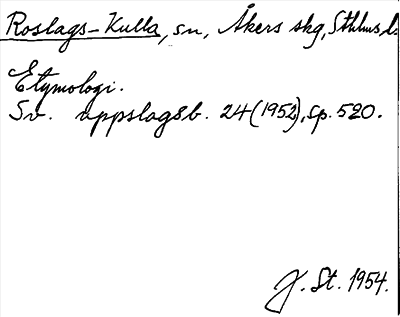 Roslags-Kulla, sn, Åkers skg, Sthlms l.
Etymologi.
Sv. uppslagsb. 24 (1952), sp. 520.
J. St. 1954.